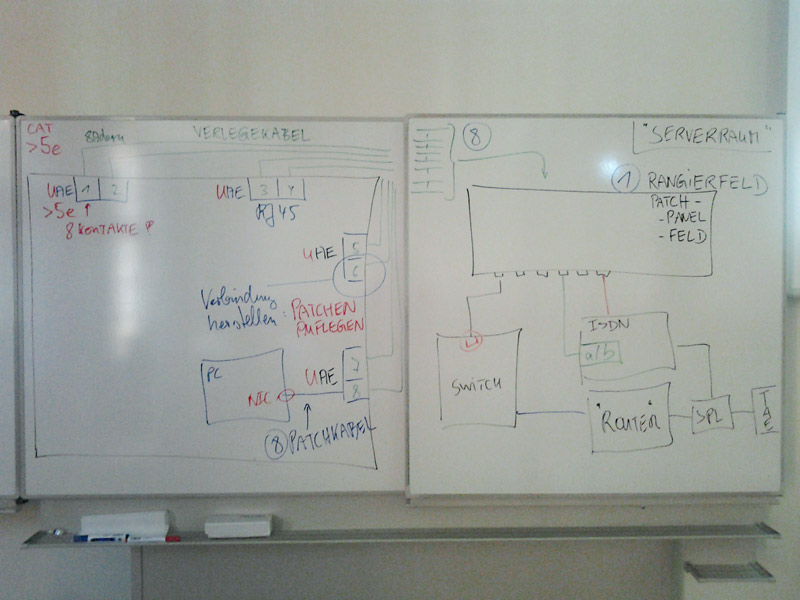 CAT
>5e
8Adern
VERLEGEKABEL
UAE 1 2
>5e ↑
8 KONTAKTE
UAE 3 4
RJ45
UAE 5
6
Verbindung
herstellen: PATCHEN
AUFLEGEN
PC
NIC
UAE 7
8
8 PATCHKABEL
8
"SERVERRAUM"
1 RANGIERFELD
PATCH-
-PANEL
-FELD
SWITCH
ISDN
a/b
"ROUTER"
SPL
TAE